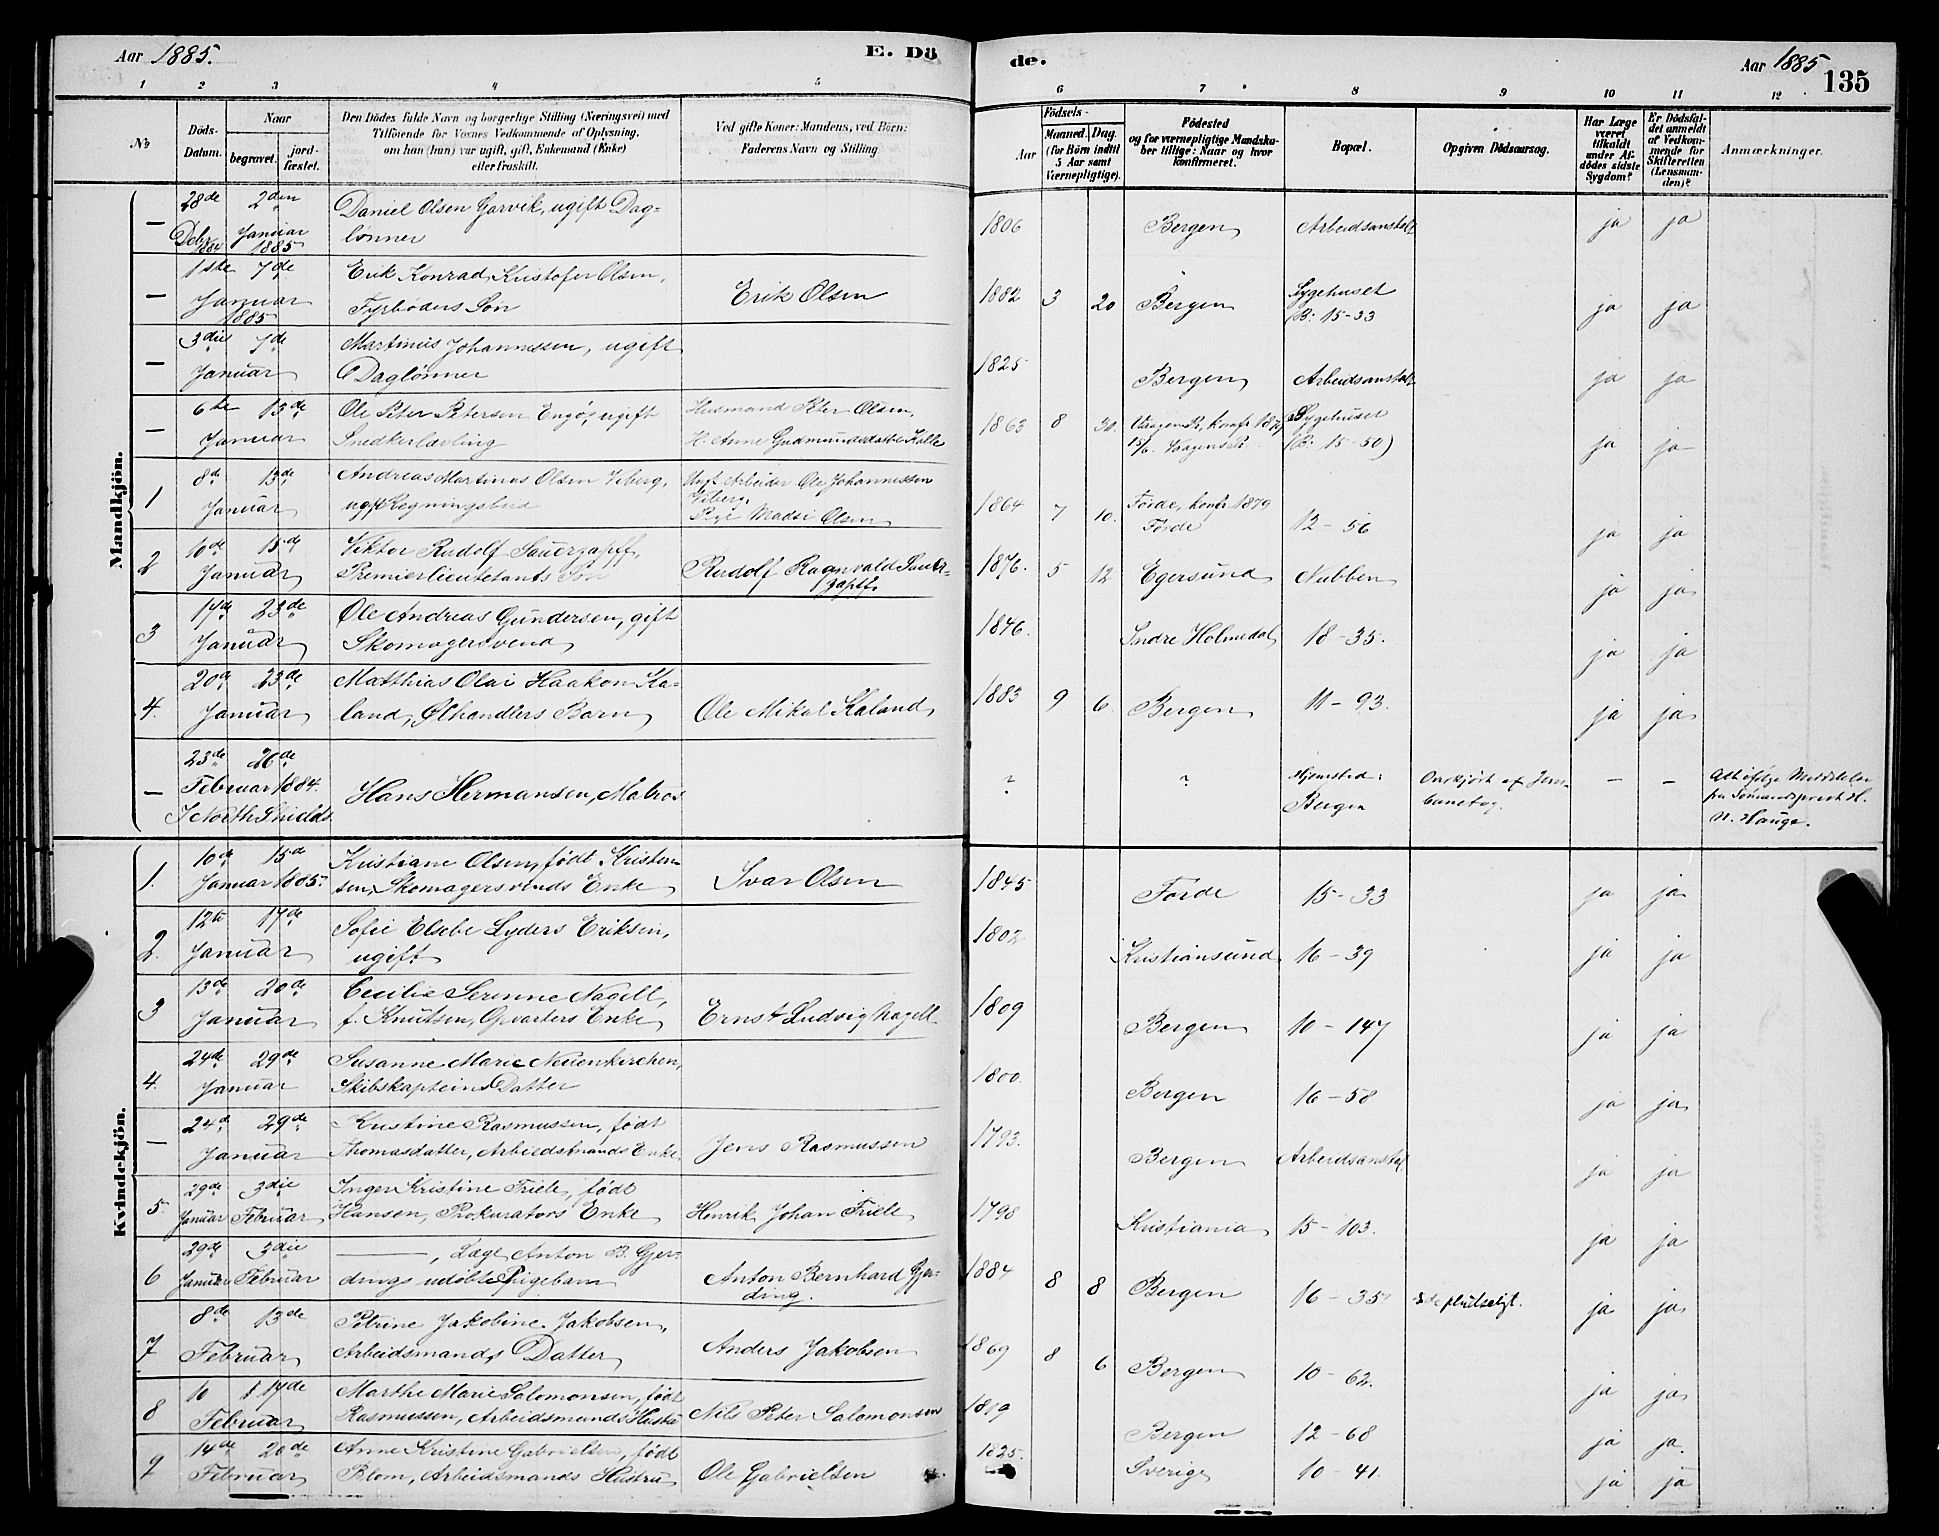 Aar 1885. E. Dö de. Aar 1885 135
1 2 3 4 5 6 7 8 9 10 11 12
No Döds-Datum. Naar begravet. jordfæstet. Den Dödes fulde Navn og borgerlige Stilling (Næringsvei) med Tilföiende for Voxnes Vedkommende af Oplysning, om han (hun) var ugift, gift, Enkemand (Enke) eller fraskilt. Ved gifte Koner: Mandens, ved Börn: Faderens Navn og Stilling Födsels- Aar Maaned. Dag. (for Börn indtil 5 Aar samt Værnepligtige). Födested og for værnepligtige Mandskaber tillige: Naar og hvor konfirmeret. Bopæl. Opgiven Dödsaarsag. Har Læge været tilkaldt under Afdödes sidste Sygdom? Er Dödsfaldet anmeldt af Vedkommende for Skifteretten (Lensmanden)? Anmærkninger.
Mandkjön.
— 28de Debr 1884 2den Januar 1885 Daniel Olsen Garvik, ugift Dag-
lønner 1806 Bergen Arbeidsanstalt ja ja
— 1ste 7de Januar 1885 Erik Konrad Kristofer Olsen,
Fyrbøders Søn Erik Olsen 1882 3 20 Bergen Sygehuset
(B: 15-33 ja ja
— 3die 7de Januar Martinus Johannessen, ugift
Daglønner 1825 Bergen Arbeidsanstalt ja ja
— 6te 13de Januar Ole Peter Petersen Engø, ugift
Snedkerlærling Husmand Peter Olsen,
H. Anne Gudmundsdatter Kalle 1863 8 30. Sygehuset
(B: 15-50) ja ja
1 8de 13de Januar Andreas Martinus Olsen Viberg,
ugift Regningsbud Ugift Arbeider Ole Johannessen
Viberg,
Pige Madsi Olsen 1864 7 10. Førde, konfr 1879
Førde 12-56 ja ja
2 10de 15de Januar Viktor Rudolf Sauerzapff,
Premierlieutetants Søn Rudolf Ragnvald Sauer-
zapff. 1876. 5 12 Egersund Nubben ja ja
3 17de 23de Januar Ole Andreas Gundersen, gift
Skomagersvend 1846. Indre Holmedal 18-35. ja ja
4. 20de 23de Januar Matthias Olai Haakon Ka-
land, Ølhandlers Barn Ole Mikal Kaland 1883 9 6 Bergen 11-93. ja ja
— 23de 26de Februar 1884.
I North Shields Hans Hermansen, Matros ? ? Hjemsted:
Bergen Overkjørt af Jern-
banetog. — — Alt ifølge Meddelelse
fra Sømandsprest H.
N. Hauge.
Kvindekjön.
1. 10de 15de Januar 1885. Kristiane Olsen, født Kristen-
sen, Skomagersvends Enke Ivar Olsen 1845 Førde 15-33 ja ja
2. 12te 17de Januar Sofie Elsebe Lyders Eriksen,
ugift 1802 Kristiansund 16-39 ja ja
3 13de 20de Januar Cecilie Serinne Nagell,
f. Knutsen, Opvarters Enke Ernst Ludvig Nagell 1809 Bergen 10-147 ja ja
4. 24de 29de Januar Susanne Marie Neuenkirchen,
Skibskapteins Datter 1800. Bergen 16-58 ja ja
— 24d 29de Januar Kristine Rasmussen, født
Thomasdatter, Arbeidsmands Enke Jens Rasmussen 1793. Bergen Arbeidsanstal. ja ja
5. 29de Januar 3die Februar Inger Kristine Friele, født
Hansen, Prokurators Enke Henrik Johan Friele 1798 Kristiania 15-103. ja ja
6 29de Januar 3die Februar ——, Læge Anton B. Gjer-
dings udøbte Pigebarn Anton Bernhard Gjer-
ding. 1884 8 8 Bergen 16-35 pludseligt. ja ja
7 8de 13de Februar Petrine Jakobine Jakobsen,
Arbeidsmands Datter Anders Jakobsen 1869 8 6 Bergen 10-62. ja ja
8 10 17de Februar Marthe Marie Salomonsen, født
Rasmussen, Arbeidsmands Hustru Nils Peter Salomonsen 1819 Bergen 12-68 ja ja.
9 14de 20de Februar Anne Kristine Gabrielsen, født
Blom, Arbeidsmands Hustru Ole Gabrielsen 1825. Sverige 10-41. ja ja